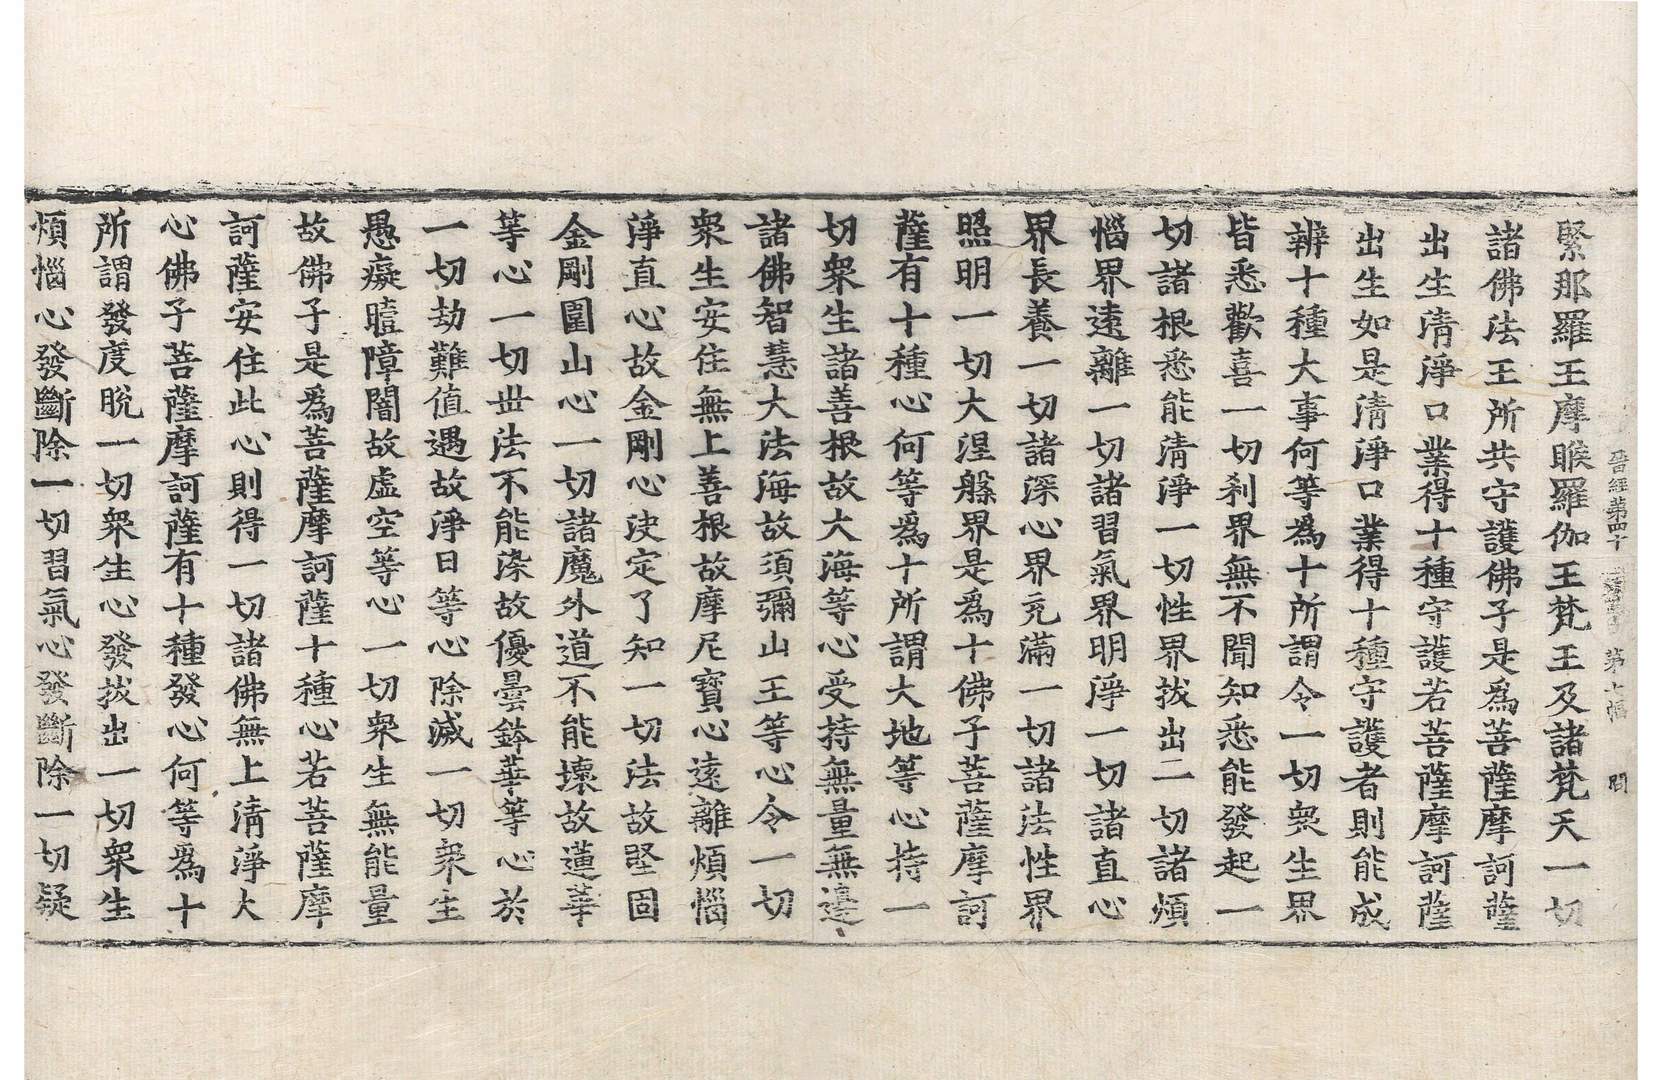 晉經第四十 第 幅 問
緊那羅王摩睺羅伽王梵王及諸梵天一切
諸佛法王所共守護佛子是爲菩薩摩訶薩
出生清淨口業得十種守護若菩薩摩訶薩
出生如是清淨口業得十種守護者則能成
辦十種大事何等爲十所謂令一切衆生界
皆悉歡喜一切刹界無不聞知悉能發起一
切諸根悉能清淨一切性界拔出一切諸煩
惱界遠離一切諸習氣界明淨一切諸直心
界長養一切諸深心界充滿一切諸法性界
照明一切大涅槃界是爲十佛子菩薩摩訶
薩有十種心何等爲十所謂大地等心持一
切衆生諸善根故大海等心受持無量無邊
諸佛智慧大法海故須彌山王等心令一切
衆生安住無上善根故摩尼寶心遠離煩惱
淨直心故金剛心決定了知一切法故堅固
金剛圍山心一切諸魔外道不能壞故蓮華
等心一切世法不能染故優曇鉢華等心於
一切劫難值遇故淨日等心除滅一切衆生
愚癡曀障闇故虛空等心一切衆生無能量
故佛子是爲菩薩摩訶薩十種心若菩薩摩
訶薩安住此心則得一切諸佛無上清淨大
心佛子菩薩摩訶薩有十種發心何等爲十
所謂發度脫一切衆生心發拔出一切衆生
煩惱心發斷除一切習氣心發斷除一切疑